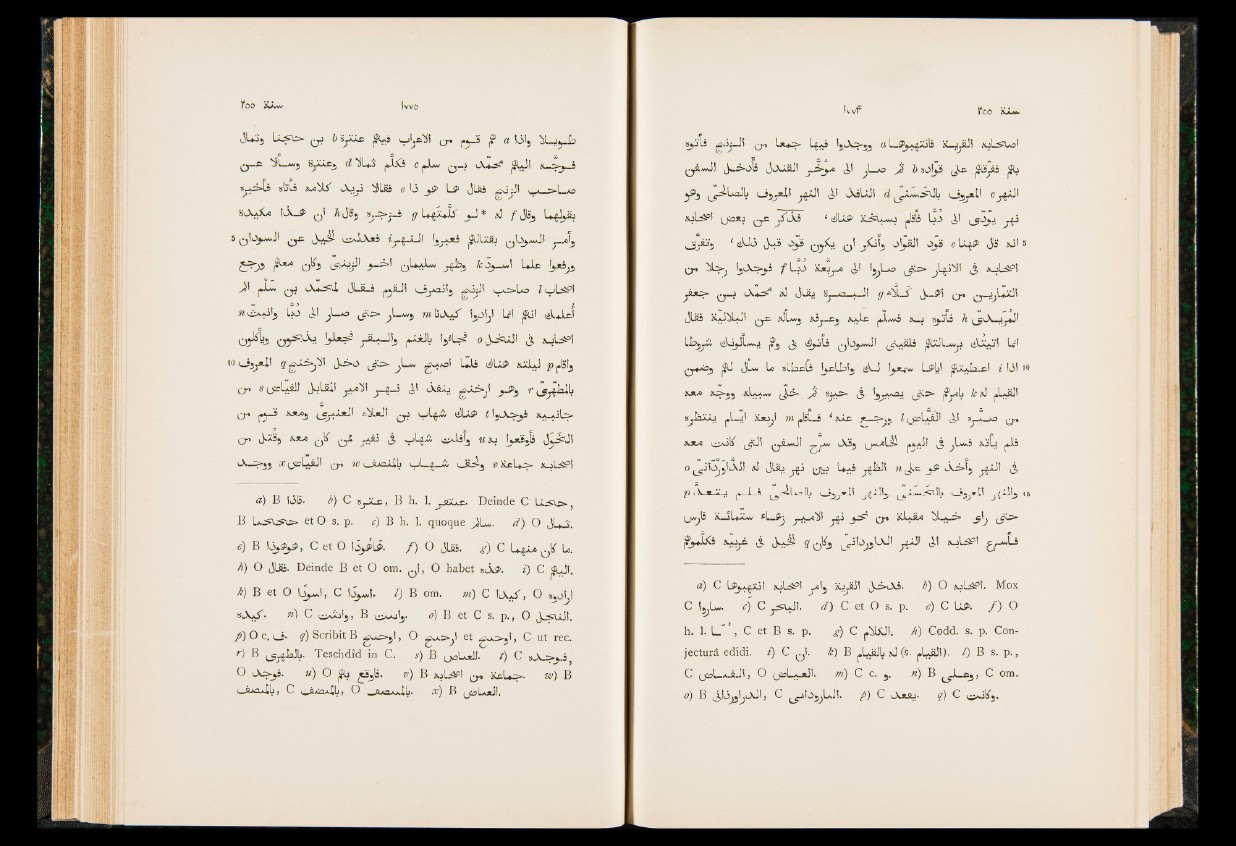 ١٧٧۴ سنة ٢٥٥
اصحابه القرية فانتهبوها a ووجدوا فيها جمعا من الزنج فأتوه
بهم ففرّقهم على قوّاده b ثم صار الى مؤخّر القندل فأدخل السفن
النهر c المعروف بالحَسَنىّ d النافذ الى النهر المعروف بالصالحىّ وهو
نهر يؤدّى الى دُبّا فأقام بسبخة هناك، فذُكر عن بعض اصحابه
انه قال هاهنا e قوّد القوّاد وانكر ان يكون قوّد قبل ذلك، وتفرّق 5
اصحابه فى الانهار حتى صاروا الى مربّعة دُبّا f فوجدوا رجلا من
التمّارين من اهل كَلّاء g البصرة يقال له محمّد بن جعفر
المُرَيدىّ h فأتوه به فسلّم عليه وعرفه وسأله عن البلاليّة فقال
انما اتيتُك برسالتهم فلقينى السودان فأتوك بى وهم يسألونك شروطا
اذا i اعطيتهم اياها سمعوا لك واطاعوا فأعطاه ما سأل لهم وضمن 10
القيام له k بامرهم حتى يصيروا فى حيزه ثم خلّى سبيله ووجّه معه
من صيّره الى الفيّاض l ورجع عنه، فأقام m اربعة ايّام ينتظره
فلم يأته فسار فى اليوم الخامس وقد سرّح السفن التى كانت معه
فى النهر وأخذ هو على n الظهر فيما بين نهر يقال له الداوَرْدانىّ o
والنهر المعروف بالحَسَنىّ والنهر المعروف بالصالحىّ فلم يتعدّ p 15
حتى راى خيلا مقبلة من نحو نهر الامير زهاء ستّمائة فارس
فأسرع اصحابه الى النهر الداوردانىّ وكان q الخيل فى غربيّه فكلّموهم
a) C فدخل القرية وامر اصحابه انتهبوها. b) O اصحابه. Mox
C ساروا. c) C البحر. d) C et O s. p. e) C هنا. f) O
h. l., C et B s. p. g) C الكلام. h) Codd. s. p. Con-
jecturâ edidi. i) C ان. k) B له بالقيام (s. القيام). l) B s. p.,
C, O. m) C c. و. n) B وهى, C om.
o) B, C. p) C يفعد. q) C وكانت.
١٧٧٥ سنة ٢٥٥
طويلا واذا a هم قوم من الاعراب فيهم عنترة b بن حجنا وثمال
فوجّه اليهم محمّد بن سلم c فكلّم ثمالا d وعنترة وسألا عن
صاحب الزنج فقال ها هو ذا e فقالا نريد كلامه فأتاه فأخبره
بقولهما وقال f له *لو كلّمتَهما g فزجره وقال h ان هذا مكيدة
وأمر السودان بقتالهم فعبروا النهر i فعدلت الخيل عن السودان 5
ورفعوا علما اسود k وظهر سليمان اخو الزينبىّ وكان معهم ورجع
اصحاب l صاحب الزنج وانصرف القوم فقال لمحمّد بن سلّم الم
أعلمك انهم انما ارادوا كيدنا m وسار حتى صار الى دُبّا وانبثّ n
اصحابه فى النخل o فجاءوا بالغنم والبقر فجعلوا يذبحون ويأكلون
واقام p ليلته هناك فلما اصبح سار حتى دخل الارخنج q المعروف 10
بالمطهّرىّ r وهو ارخنج ينفذ الى نهر الامير المقابل للفيّاض s من
جانبيه فوجدوا t هناك شهاب بن العلاء العنبرىّ ومعه قوم من
الخَوَل فأوقعوا به u وأفلت شهاب فى نفير ممّن كان معه وقُتل من
اصحابه جماعة v ولحق شهاب بالمنصف w من الفيّاض x ووجد
a) B فاذا. b) C, B h. l. Deinde C,
B et O s. p. c) B h. l. quoque سالم. d) O ثمال.
e) B هوهوذا, C et O هاهوذا. f) O فقال. g) C ما كان منهما.
h) O فقال. Deinde B et O om. ان, O habet هذه. i) C اليهم.
k) B et O اسودا, C اسودا. l) B om. m) C كيدا, O ارادوه
كيده. n) C, B. o) B et C s. p., O النخيل.
p) O c. ف. q) Scribit B, O et, C ut rec.
r) B بالطهرى. Teschdîd in C. s) B. t) C فوجده,
O فوجد. u) O فاوقع بهم. v) B جماعة من اصحابه. w) B
, C, O. x) B.